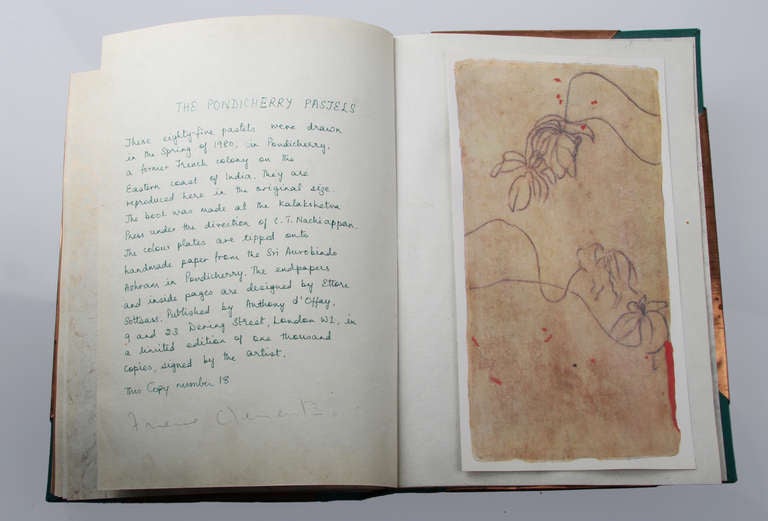 THE PONDICHERRY PASTELS
These eighty-five pastels were drawn
in the Spring of 1980, in Pondicherry,
a former French colony on the
Eastern coast of India. They are
reproduced here in the original size.
The book was made at the Kalakshetra
Press under the direction of C.T. Nachiappan.
The colour plates are tipped onto
handmade paper from the Sri Aurobindo
Ashram in Pondicherry. The endpapers
and inside pages are designed by Ettore
Sottsass. Published by Anthony d'Offay,
9 and 23 Dering Street, London W1, in
a limited edition of one thousand
copies, signed by the artist.
This Copy number 18
Clemente